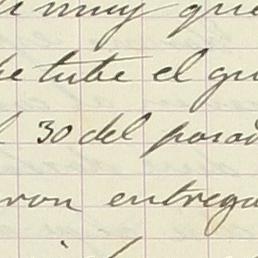 muy que
tube el gu
30 del pasad
ron entrega